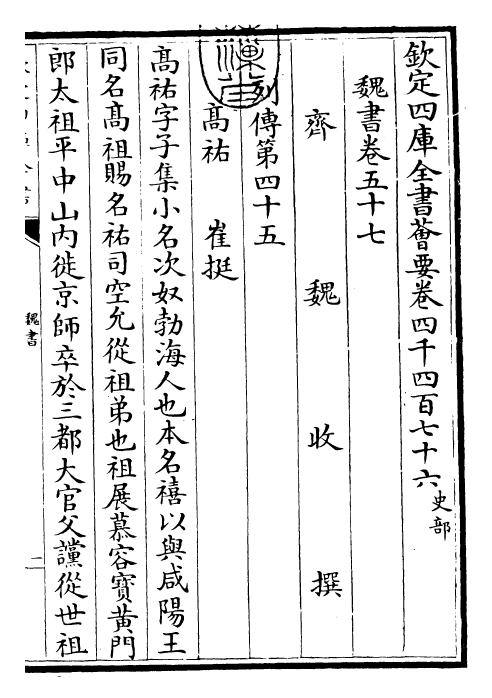 欽定四庫全書薈要卷四千四百七十六 史部
魏書卷五十七
齊 魏 收 撰
列傳第四十五
高祐 崔挺
高祐字子集小名次奴勃海人也本名禧以與咸陽王
同名高祖賜名祐司空允從祖弟也祖展慕容寶黃門
郎太祖平中山内徙京師卒於三都大官父讜從世祖
魏書